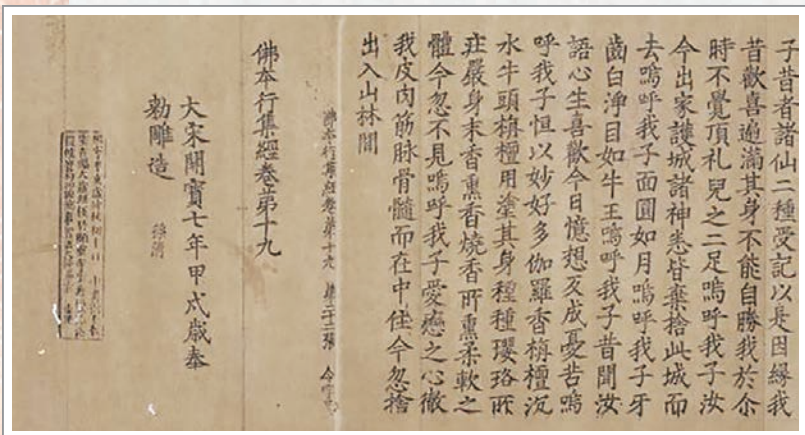 子昔者諸仙二種受記以是因緣我
昔歡喜遍滿其身不能自勝我於尒
時不覺頂礼兒之二足嗚呼我子汝
今出家護城諸神悉皆棄捨此城而
去嗚呼我子面圓如月嗚呼我子牙
齒白淨目如牛王嗚呼我子昔聞汝
語心生喜歡今日憶想反成憂苦嗚
呼我子恒以妙好多伽羅香栴檀沉
水牛頭栴檀用塗其身種種瓔珞而
莊嚴身末香熏香燒香所熏柔軟之
體今忽不見嗚呼我子愛戀之心徹
我皮肉筋脉骨髓而在中住今忽捨
出入山林間
佛本行集經卷第十九 第二十二張
佛本行集經卷第十九
大宋開寶七年甲戌歲奉
勑雕造